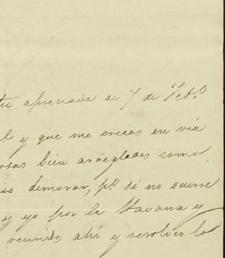 tu apreciada de 7 de Feb.º
l y que me creias en via
osas bien arregladas como
demorar, p.º si no ocurre
y yo por la Havana y
reunirnos ahi y resolver lo